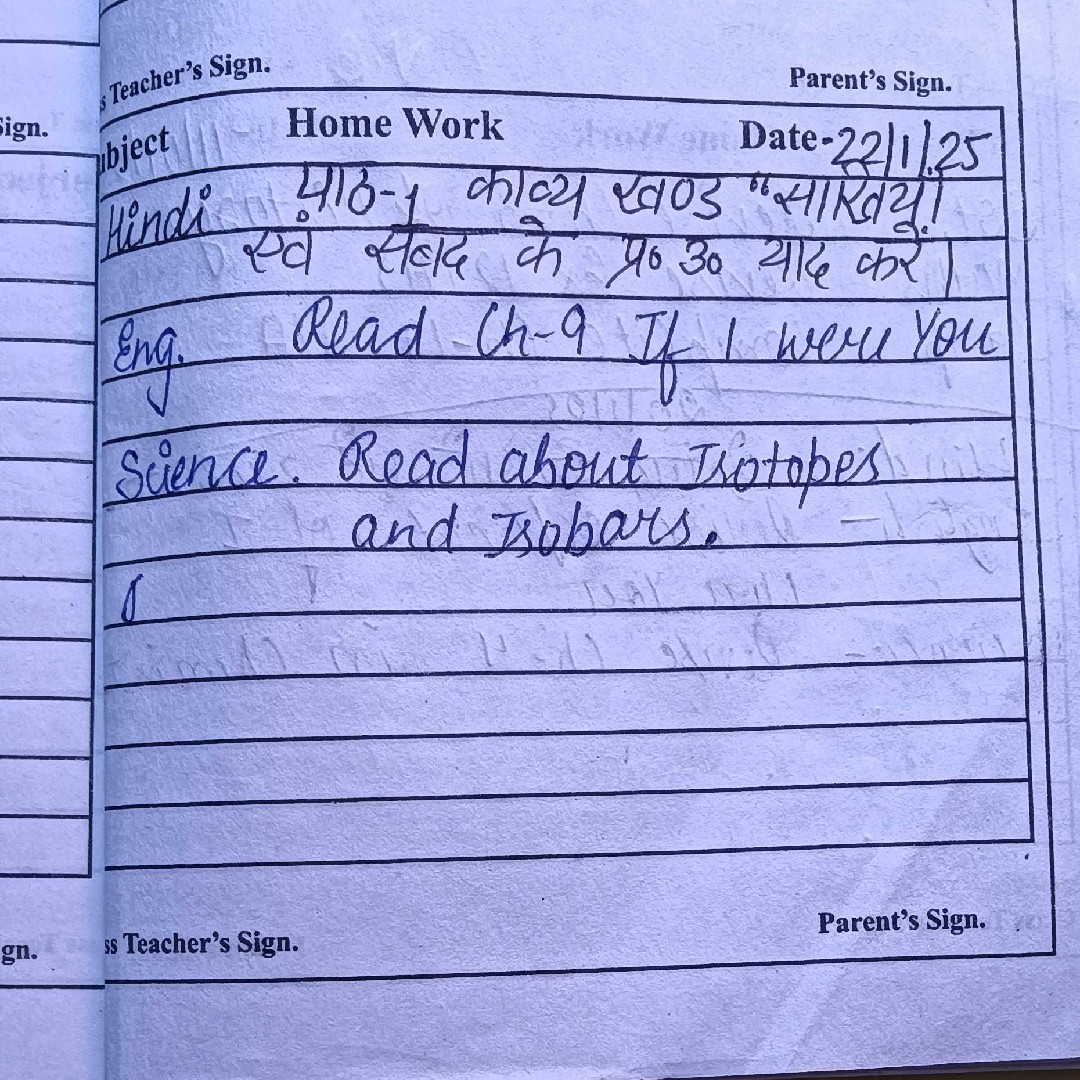 s Teacher's Sign.
Parent's Sign.
Sign.
ubject Home Work Date-22/1/25
Hindi पाठ-1 काव्य खण्ड "साखियाँ
एवं सबद के प्र० उ० याद करें।
Eng. Read Ch-9 If I were You
Science. Read about Isotopes
and Isobars.
Parent's Sign.
gn.
ss Teacher's Sign.